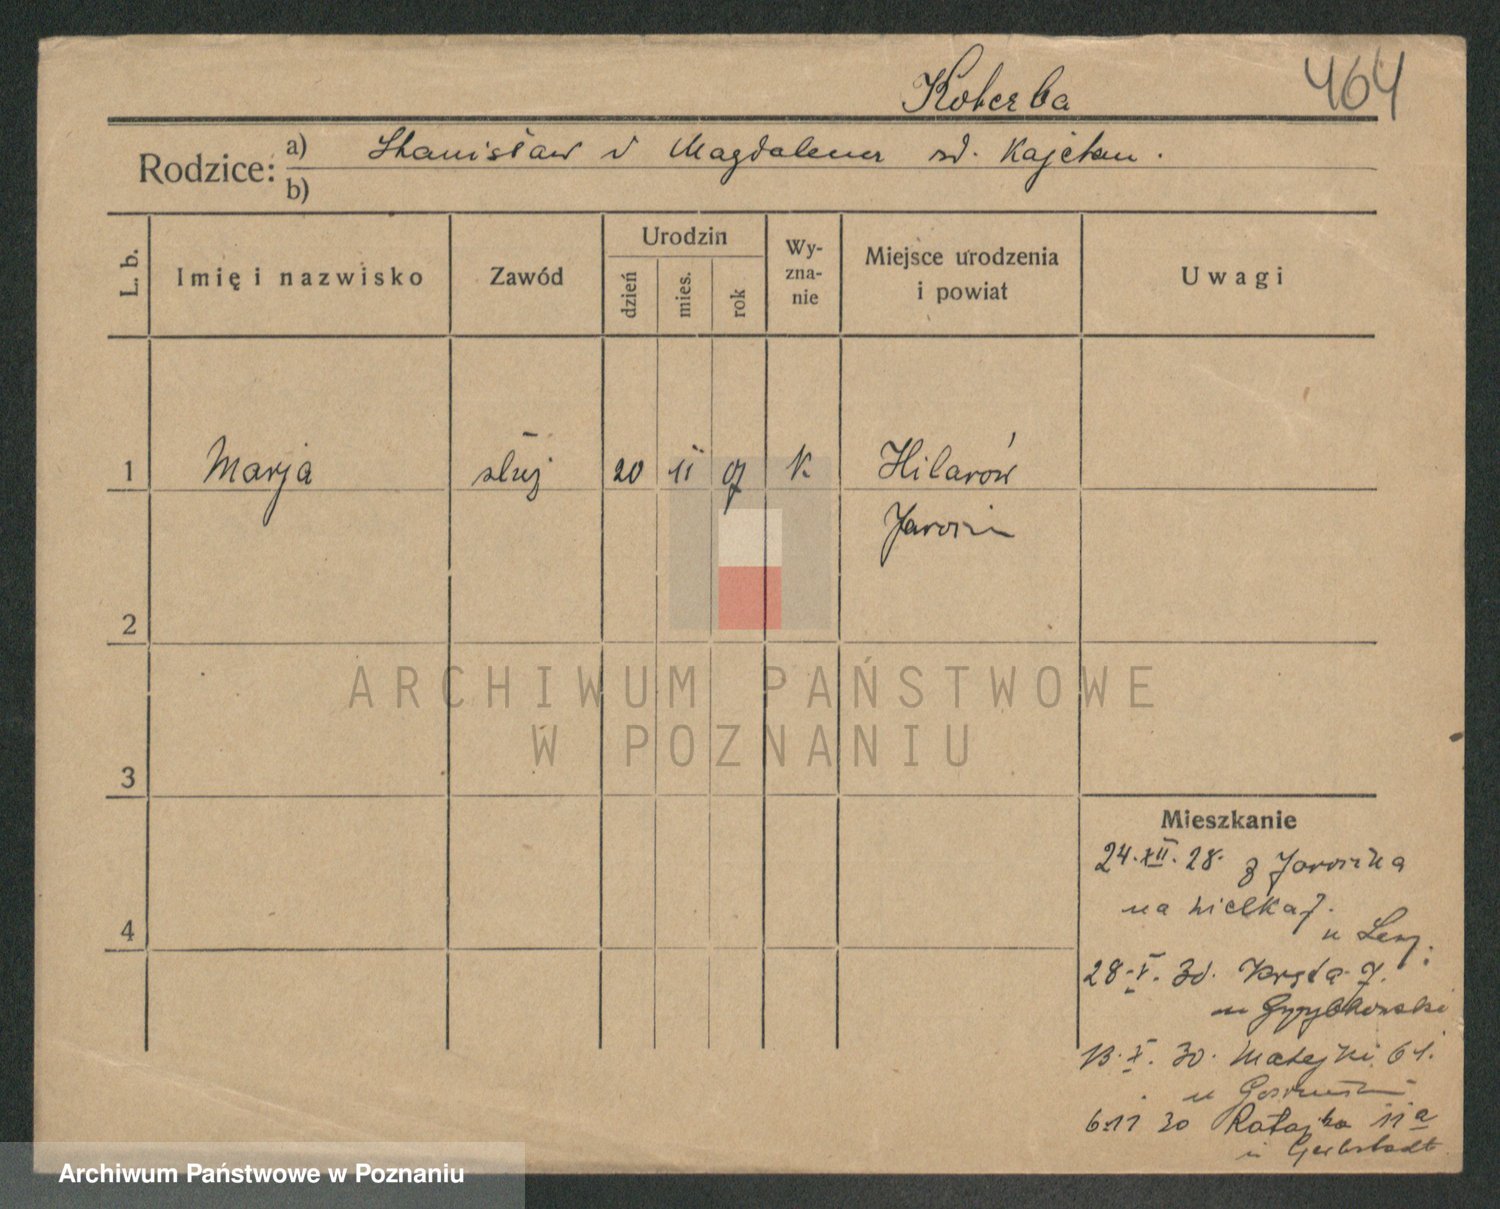 Koterba 464
Rodzice: a) Stanisław i Magdalena zd. Kajetan.
b)
L. b. Imię i nazwisko Zawód Urodzin dzień mies. rok Wyznanie Miejsce urodzenia i powiat Uwagi
1 Marja służ 20 11 07 K Hilarów
Jarocin
2
ARCHIWUM PAŃSTWOWE
W POZNANIU
3
Mieszkanie
24.XII.28. z Jarocina
na Wielka 7.
4
28.V.30. Kręta 7.
u Grzybkowski
13.X.30. Matejki 61.
u
6.11 30 Ratajka 11a
u
Archiwum Państwowe w Poznaniu